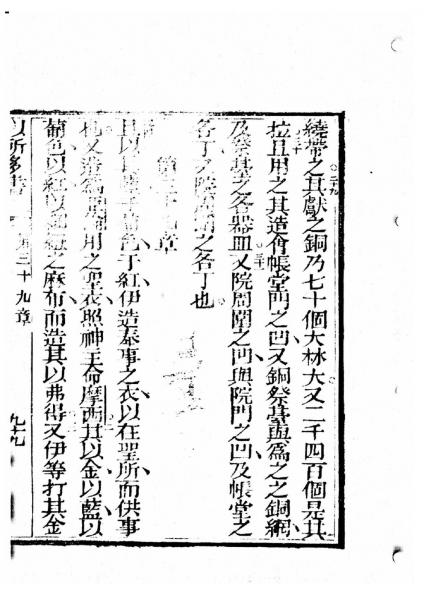 繞帶之其獻之銅乃七十個大林大又二千四百個是其
拉且用之其造會帳堂門之凹又銅祭臺與為之之銅網
及祭臺之各器皿又院周圍之凹與院門之凹及帳堂之
各丁及院周圍之各丁也
第三十九章
且以其藍紅伊造奉事之衣以在聖所而供事
也又造為用之聖衣照神主命摩西其以金以藍以
葡色以紅以細織之麻布而造其以弗得又伊等打其金
以所多書 第三十九章 九九